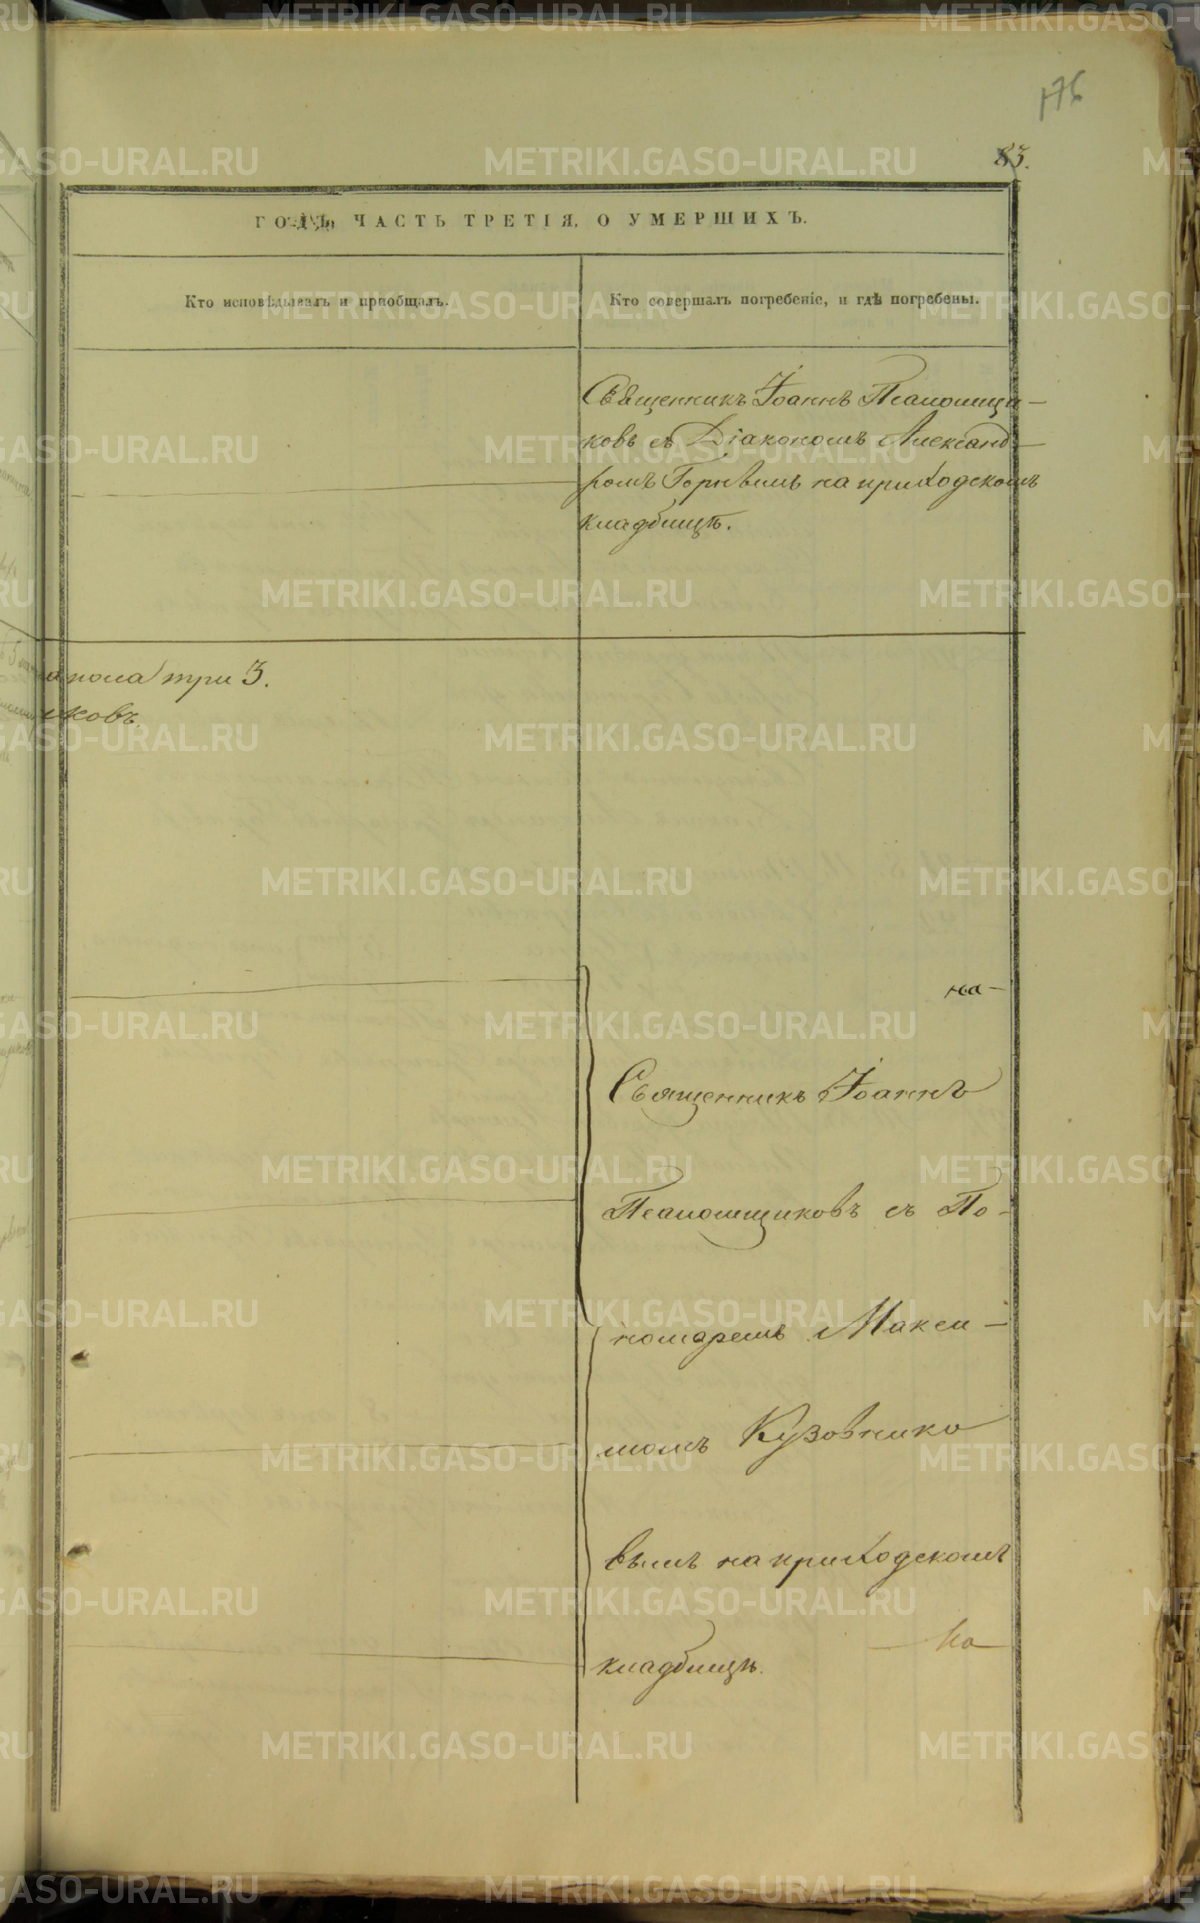 176
83.
ГОДЪ ЧАСТЬ ТРЕТІЯ, О УМЕРШИХЪ.
Кто исповѣдывалъ и пріобщалъ.
Кто совершалъ погребеніе, и гдѣ погребены.
Священникъ Іоаннъ Псаломщи-
ковъ съ Діакономъ Александ-
ромъ Горнымъ на приходскомъ
кладбищѣ.
пола три 3.
иковъ.
на-
Священникъ Іоаннъ
Псаломщиковъ съ По-
номаремъ Макси-
момъ Кузовнико
вымъ на приходскомъ
кладбищѣ.
На
METRIKI.GASO-URAL.RU